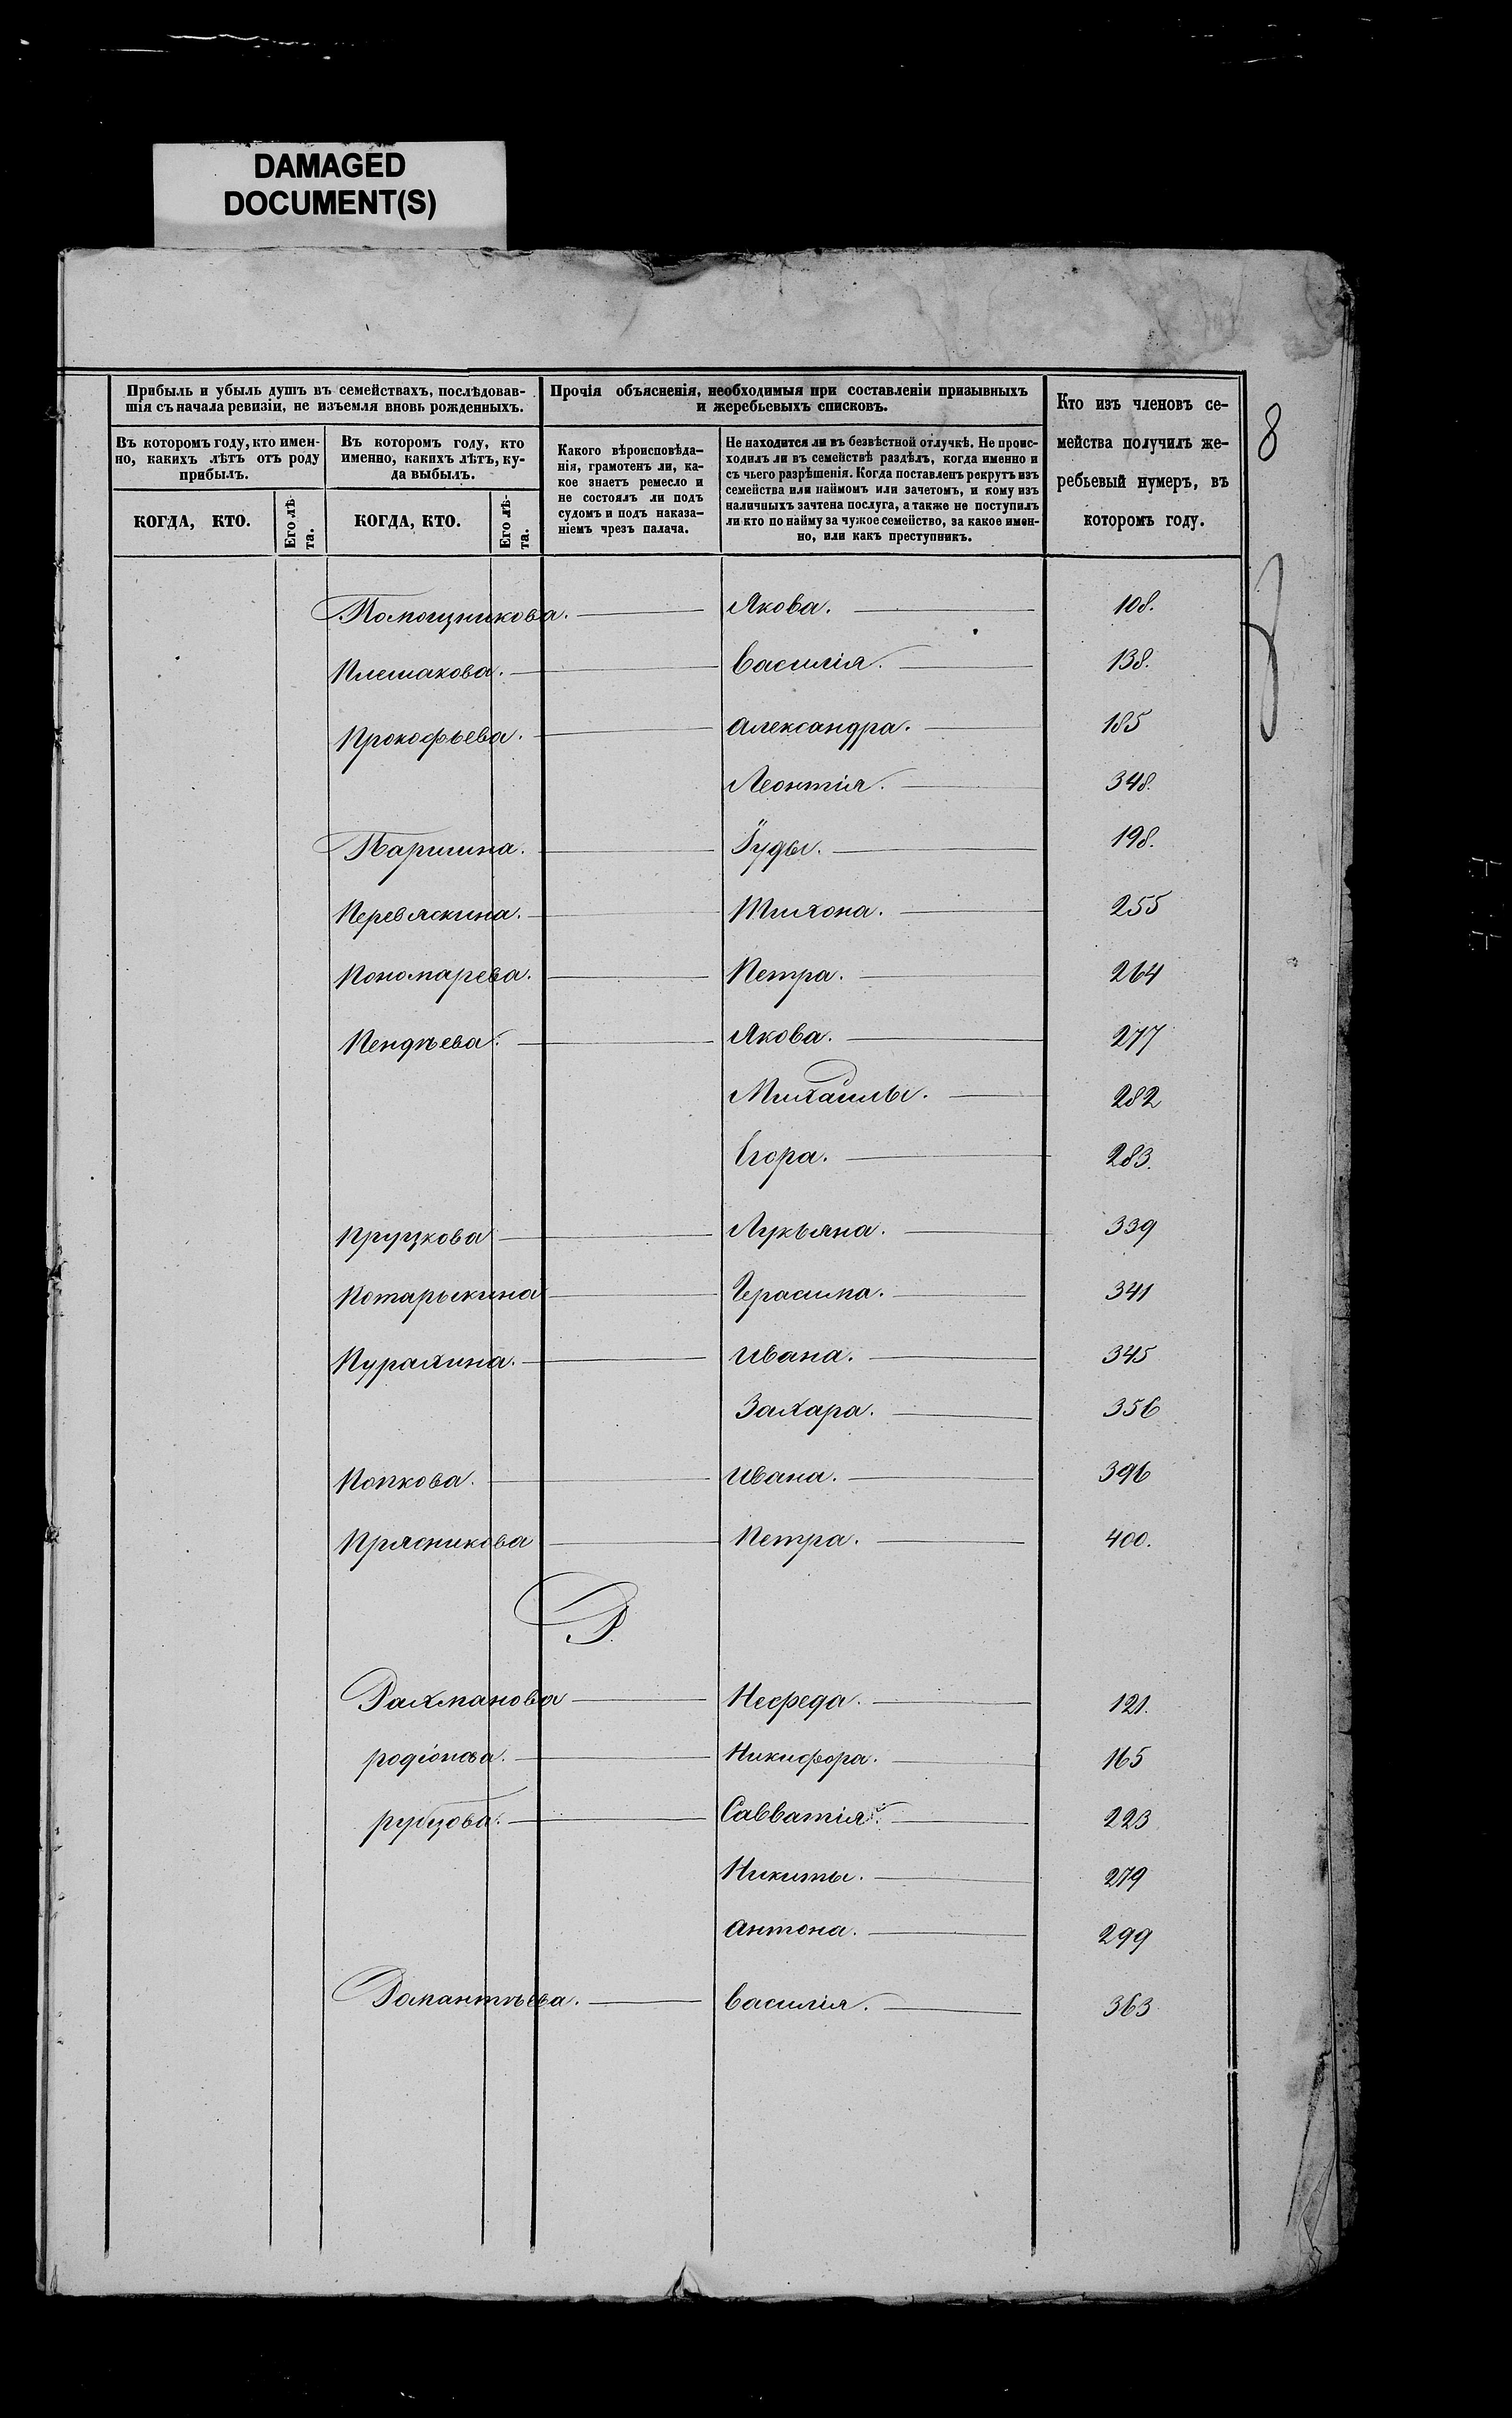 DAMAGED
DOCUMENT(S)
8
Прибыль и убыль душъ въ семействахъ, послѣдовав-
шія съ начала ревизіи, не изъемля вновь рожденныхъ.
Прочія объясненія, необходимыя при составленіи призывныхъ
и жеребьевыхъ списковъ.
Кто изъ членовъ се-
мейства получилъ же-
ребьевый нумеръ, въ
которомъ году.
Въ которомъ году, кто имен-
но, какихъ лѣтъ отъ роду
прибылъ.
Въ которомъ году, кто
именно, какихъ лѣтъ, ку-
да выбылъ.
Какого вѣроисповѣда-
нія, грамотенъ ли, ка-
кое знаетъ ремесло и
не состоялъ ли подъ
судомъ и подъ наказа-
ніемъ чрезъ палача.
Не находится ли въ безвѣстной отлучкѣ. Не проис-
ходилъ ли въ семействѣ раздѣлъ, когда именно и
съ чьего разрѣшенія. Когда поставленъ рекрутъ изъ
семейства или наймомъ или зачетомъ, и кому изъ
наличныхъ зачтена послуга, а также не поступилъ
ли кто по найму за чужое семейство, за какое имен-
но, или какъ преступникъ.
КОГДА, КТО.
Его лѣ-
та.
КОГДА, КТО.
Его лѣ-
та.
Помощникова. Якова. 108.
Плешакова. Василія. 138.
Прокофьева. Александра. 185
Леонтія. 348.
Паршина. Іуды. 198.
Перевяскина. Тихона. 255
Пономарева. Петра. 264
Пендѣева. Якова. 277
Михаилы. 282
Егора. 283.
Пруцкова Лукьяна. 339
Потарыкина Герасима. 341
Пурахина. Ивана. 345
Захара. 356
Попкова. Ивана. 396
Прясникова Петра. 400.
Р.
Рахманова Нефеда. 121.
Родіонова. Никифора. 165
Рубцова. Савватія. 223
Никиты. 279
Антона. 299
Василія. 363